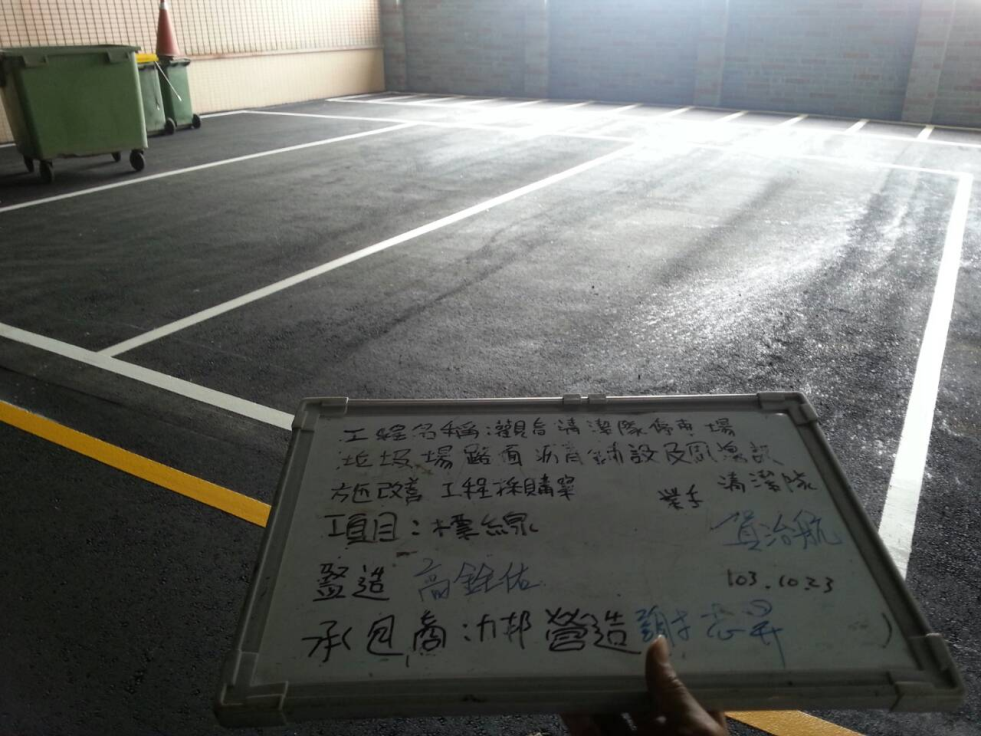 工程名稱:觀音清潔隊停車場
垃圾場路面瀝青鋪設及風漁設
施改善工程採購案
清潔隊
項目:標線
監造 高銓佑
103.10.23
承包商:力邦營造